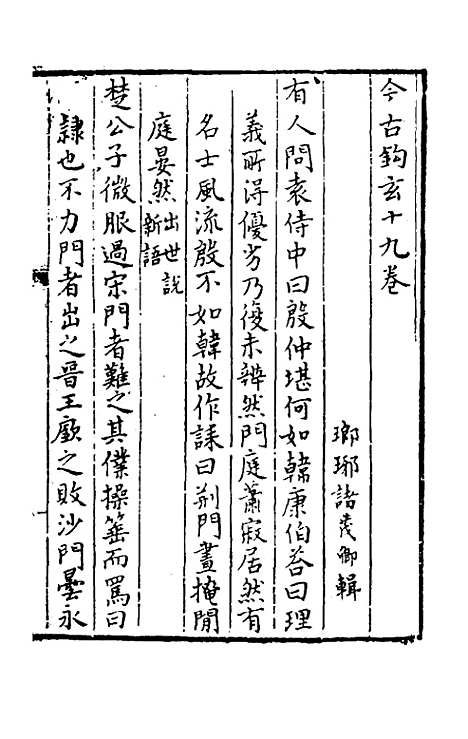 今古鈎玄十九卷
瑯琊諸茂卿輯
有人問袁侍中曰殷仲堪何如韓康伯荅曰理
義所得優劣乃復未辨然門庭蕭寂居然有
名士風流殷不如韓故作誄曰荆門晝掩閒
庭晏然出世說新語
楚公子微服過宋門者難之其僕操箠而罵曰
隷也不力門者出之晉王廞之敗沙門曇永